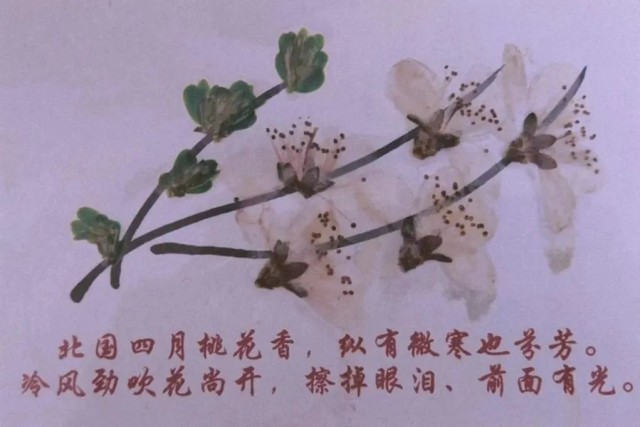 北国四月桃花香，纵有微寒也芬芳。
冷风劲吹花尚开，擦掉眼泪、前面有光。